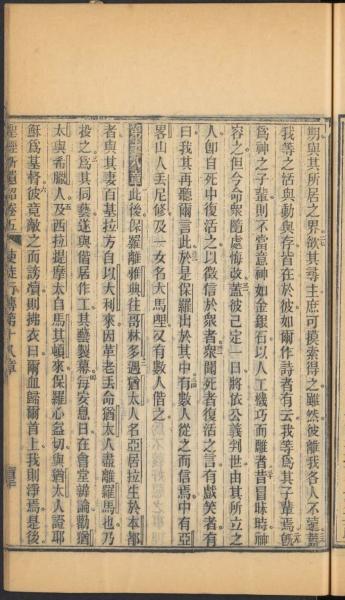 期與其所居之界欲其尋主庶可摸索得之雖然彼離我各人不遠蓋
我等之活與動與存皆在於彼如爾作詩者有云我等爲其子輩焉旣
爲神之子輩則不當意神如金銀石以人工機巧而雕者昔冒昧時神
容之但今命衆隨處悔改蓋彼已定一日將依公義判世由其所立之
人卽自死中復活之以徵信於衆者衆聞死者復活之言有戲笑者有
曰我其再聽爾言此於是保羅出於其中有數人從之而信焉中有亞
畧山人丟尼修及一女名大馬哩又有數人偕之
此後保羅離雅典往哥林多遇猶太人名亞居拉生於本都
者與其妻百基拉方自以大利來因革老丟命猶太人盡離羅馬也乃
投之爲其同藝遂與偕居作工其藝製幕每安息日在會堂辨論勸猶
太與希臘人及西拉提摩太自馬其頓來保羅心益切與猶太人證耶
穌爲基督彼竟敵之而謗瀆則拂衣曰爾血歸爾首上我則淨焉是後
聖經新遺詔卷五 使徒行傳第十八章